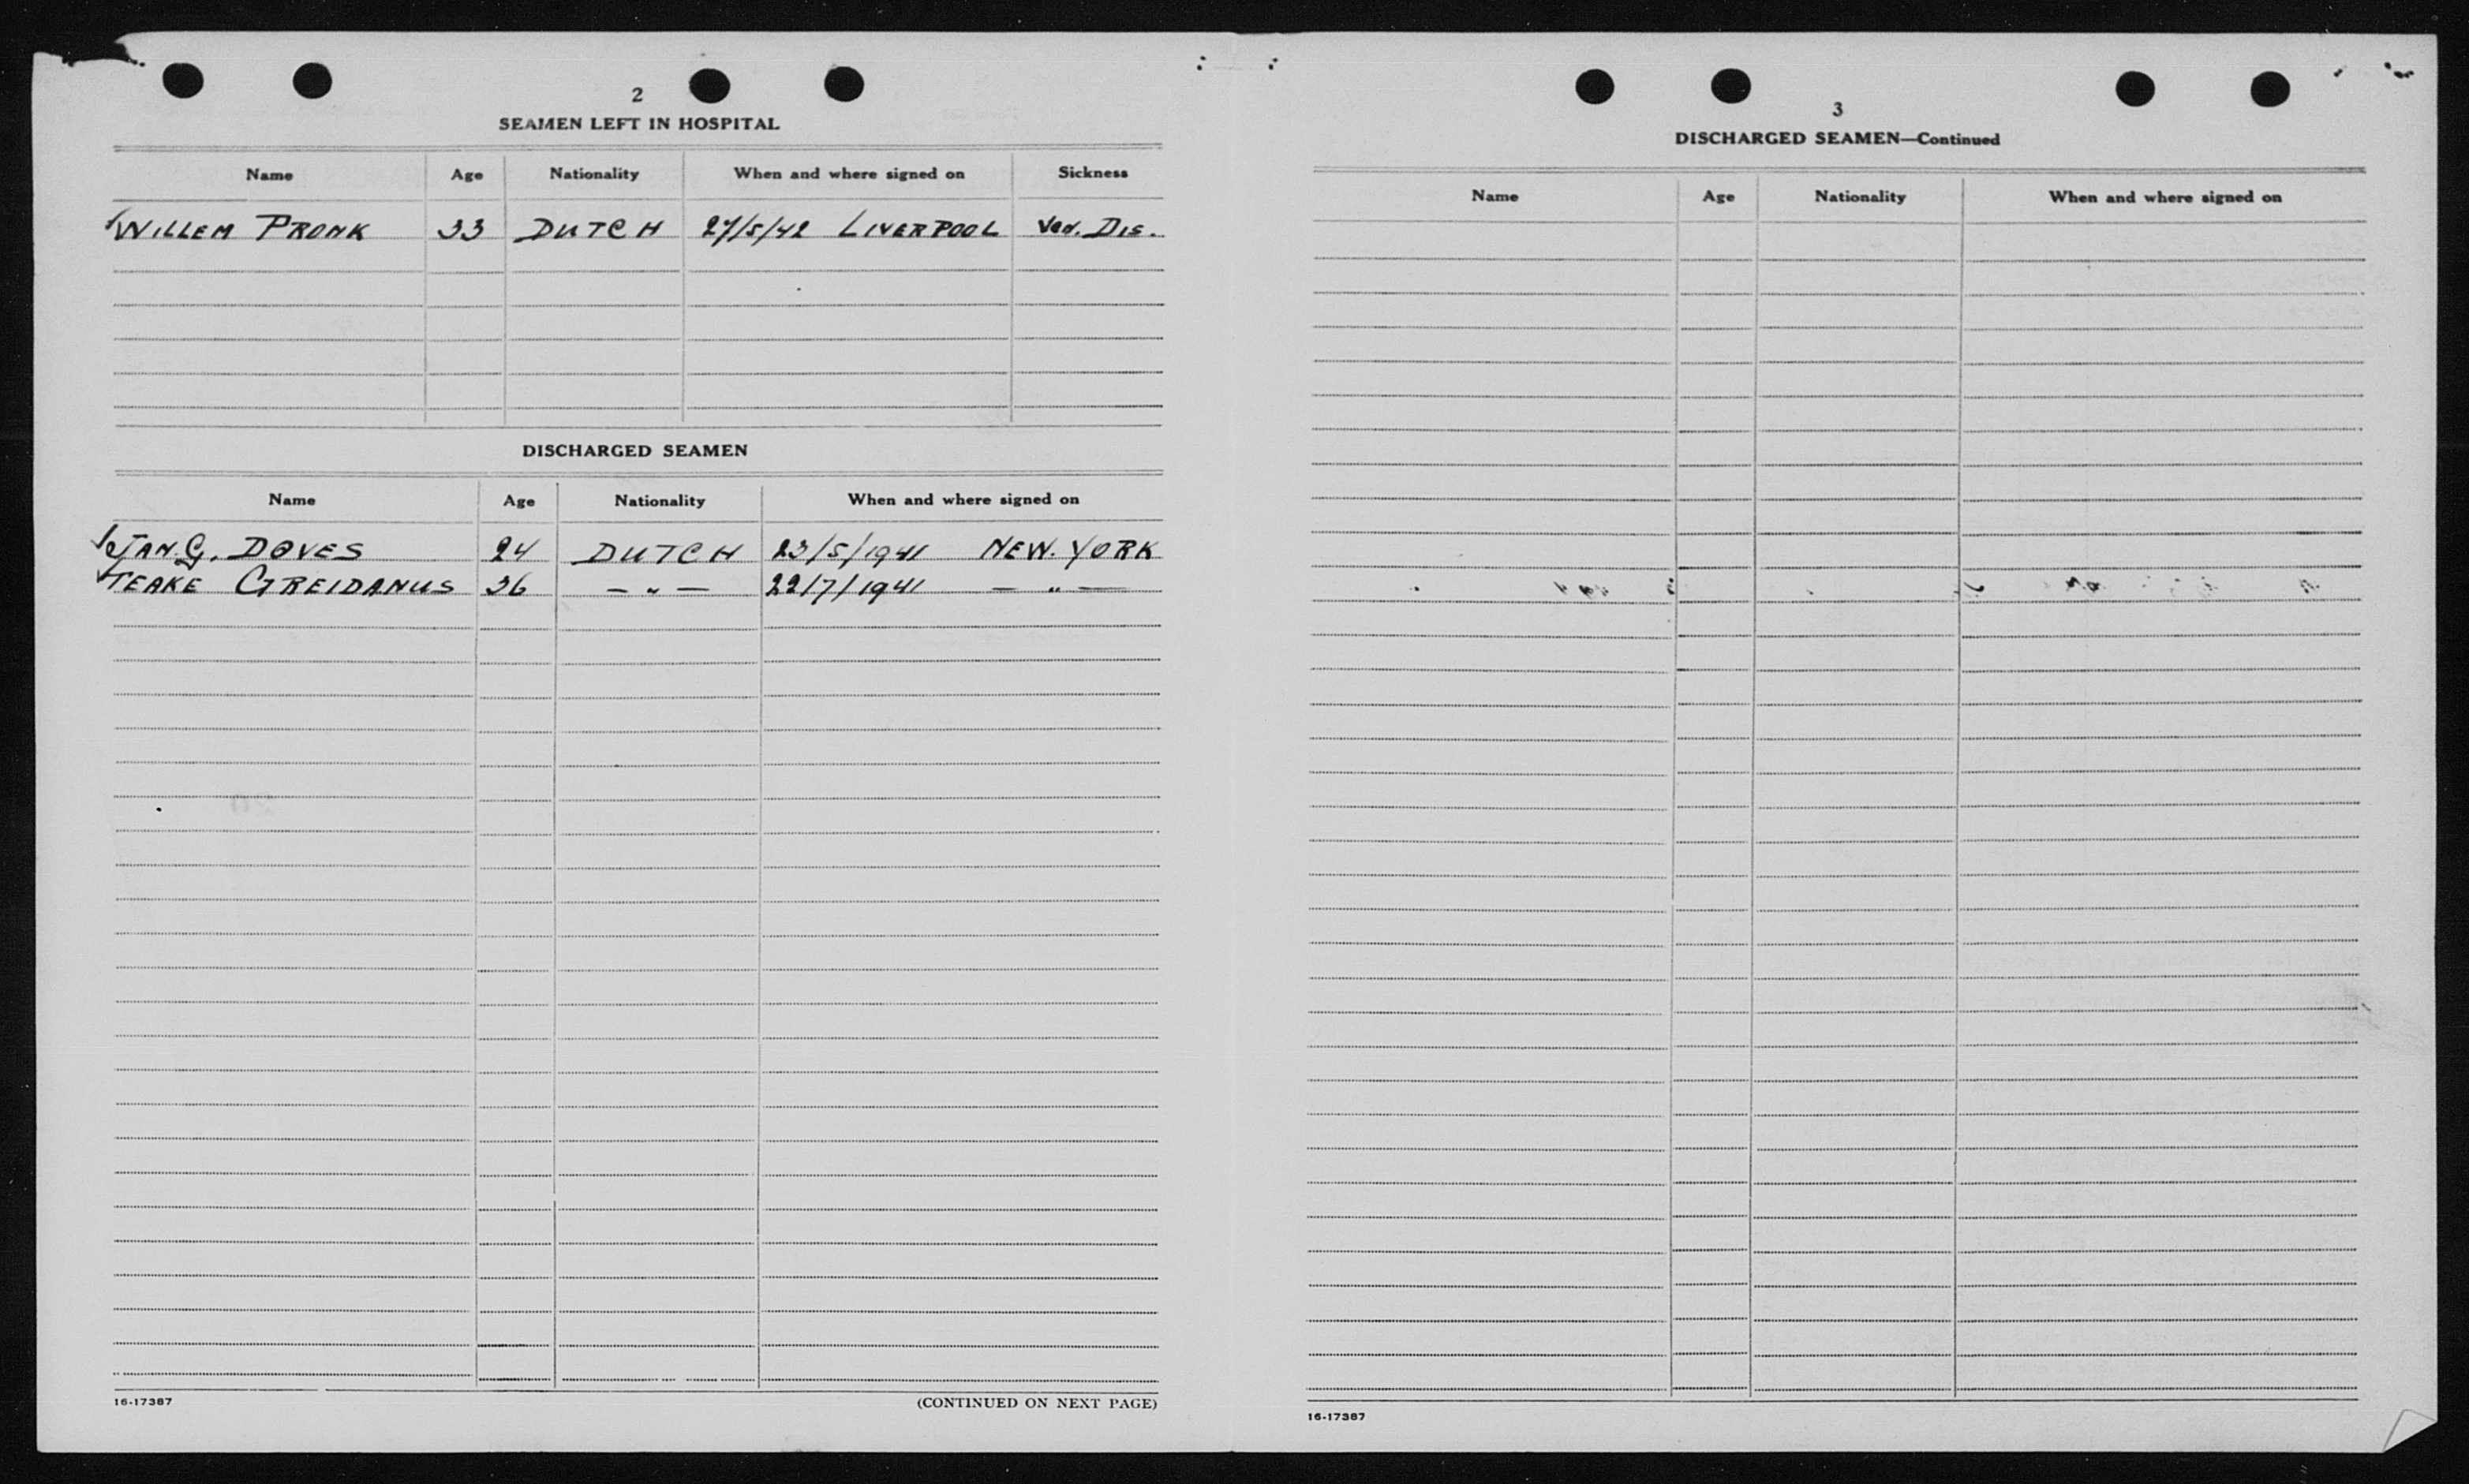 2
SEAMEN LEFT IN HOSPITAL
Name Age Nationality When and where signed on Sickness
WILLEM PRONK 33 DUTCH 27/5/42 LIVERPOOL Ven. Dis.
DISCHARGED SEAMEN
Name Age Nationality When and where signed on
JAN.G. DOVES 24 DUTCH 23/5/1941 NEW. YORK
TEAKE GREIDANUS 36 — " — 22/7/1941 — " —
16-17387 (CONTINUED ON NEXT PAGE)
3
DISCHARGED SEAMEN—Continued
Name Age Nationality When and where signed on
16-17387